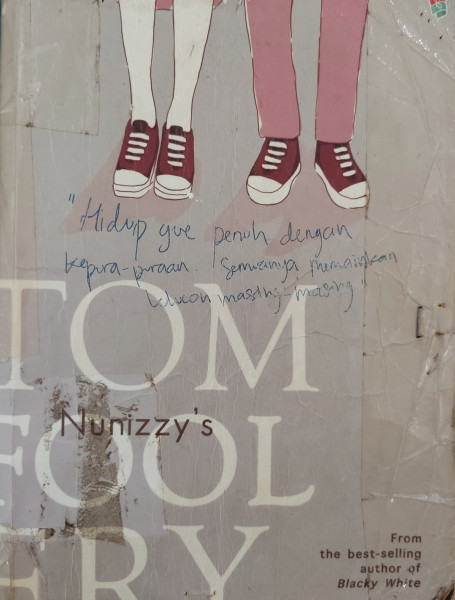 "Hidup gue penuh dengan
kepura-puraan. Semuanya memainkan
lelucon masing-masing"
TOM
Nunizzy's
FOOL
ERY
From
the best-selling
author of
Blacky White